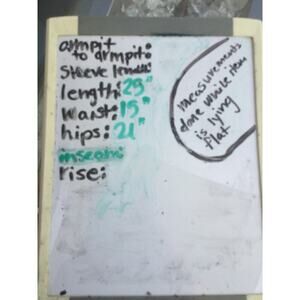 armpit
to armpit:
Sleeve length:
length: 25"
waist: 15"
hips: 21"
inseam:
rise:
measurements
done while item
is lying
flat